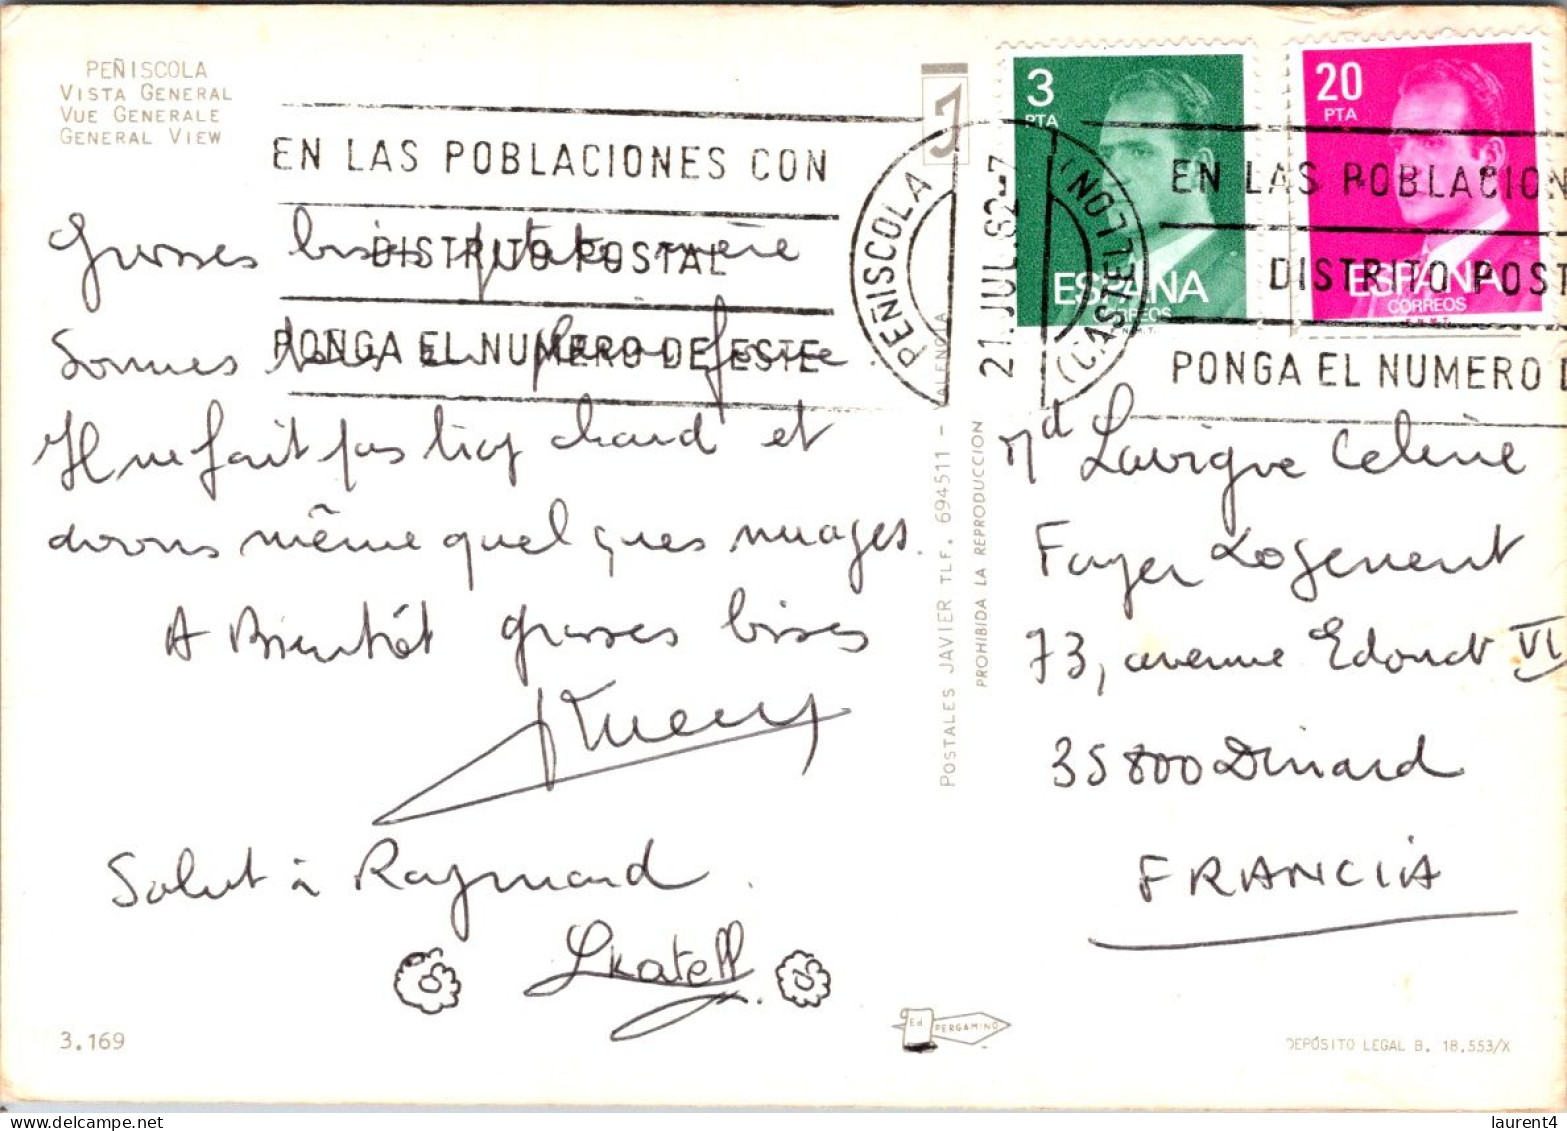 PEÑISCOLA
VISTA GENERAL
VUE GENERALE
GENERAL VIEW
EN LAS POBLACIONES CON
DISTRITO POSTAL
PONGA EL NUMERO DE ESTE
Grosses bises petite mère
Sommes tous en pleine forme
Il ne fait pas trop chaud et
avons même quelques nuages.
A Bientôt grosses bises
Salut à Raymond.
Gkatell
3.169
J
POSTALES JAVIER TLF. 694511 - VALENCIA
PROHIBIDA LA REPRODUCCION
Ed PERGAMINO
PEÑISCOLA
21.JUL.82-7
(CASTELLON)
3
PTA
ESPAÑA
CORREOS
F.N.M.T.
20
PTA
ESPAÑA
CORREOS
F.N.M.T.
EN LAS POBLACION
DISTRITO POST
PONGA EL NUMERO D
Md Lavigne Celine
Foyer Logement
73, avenue Edouard VI
35800 Dinard
FRANCIA
DEPÓSITO LEGAL B. 18.553/X
laurent4